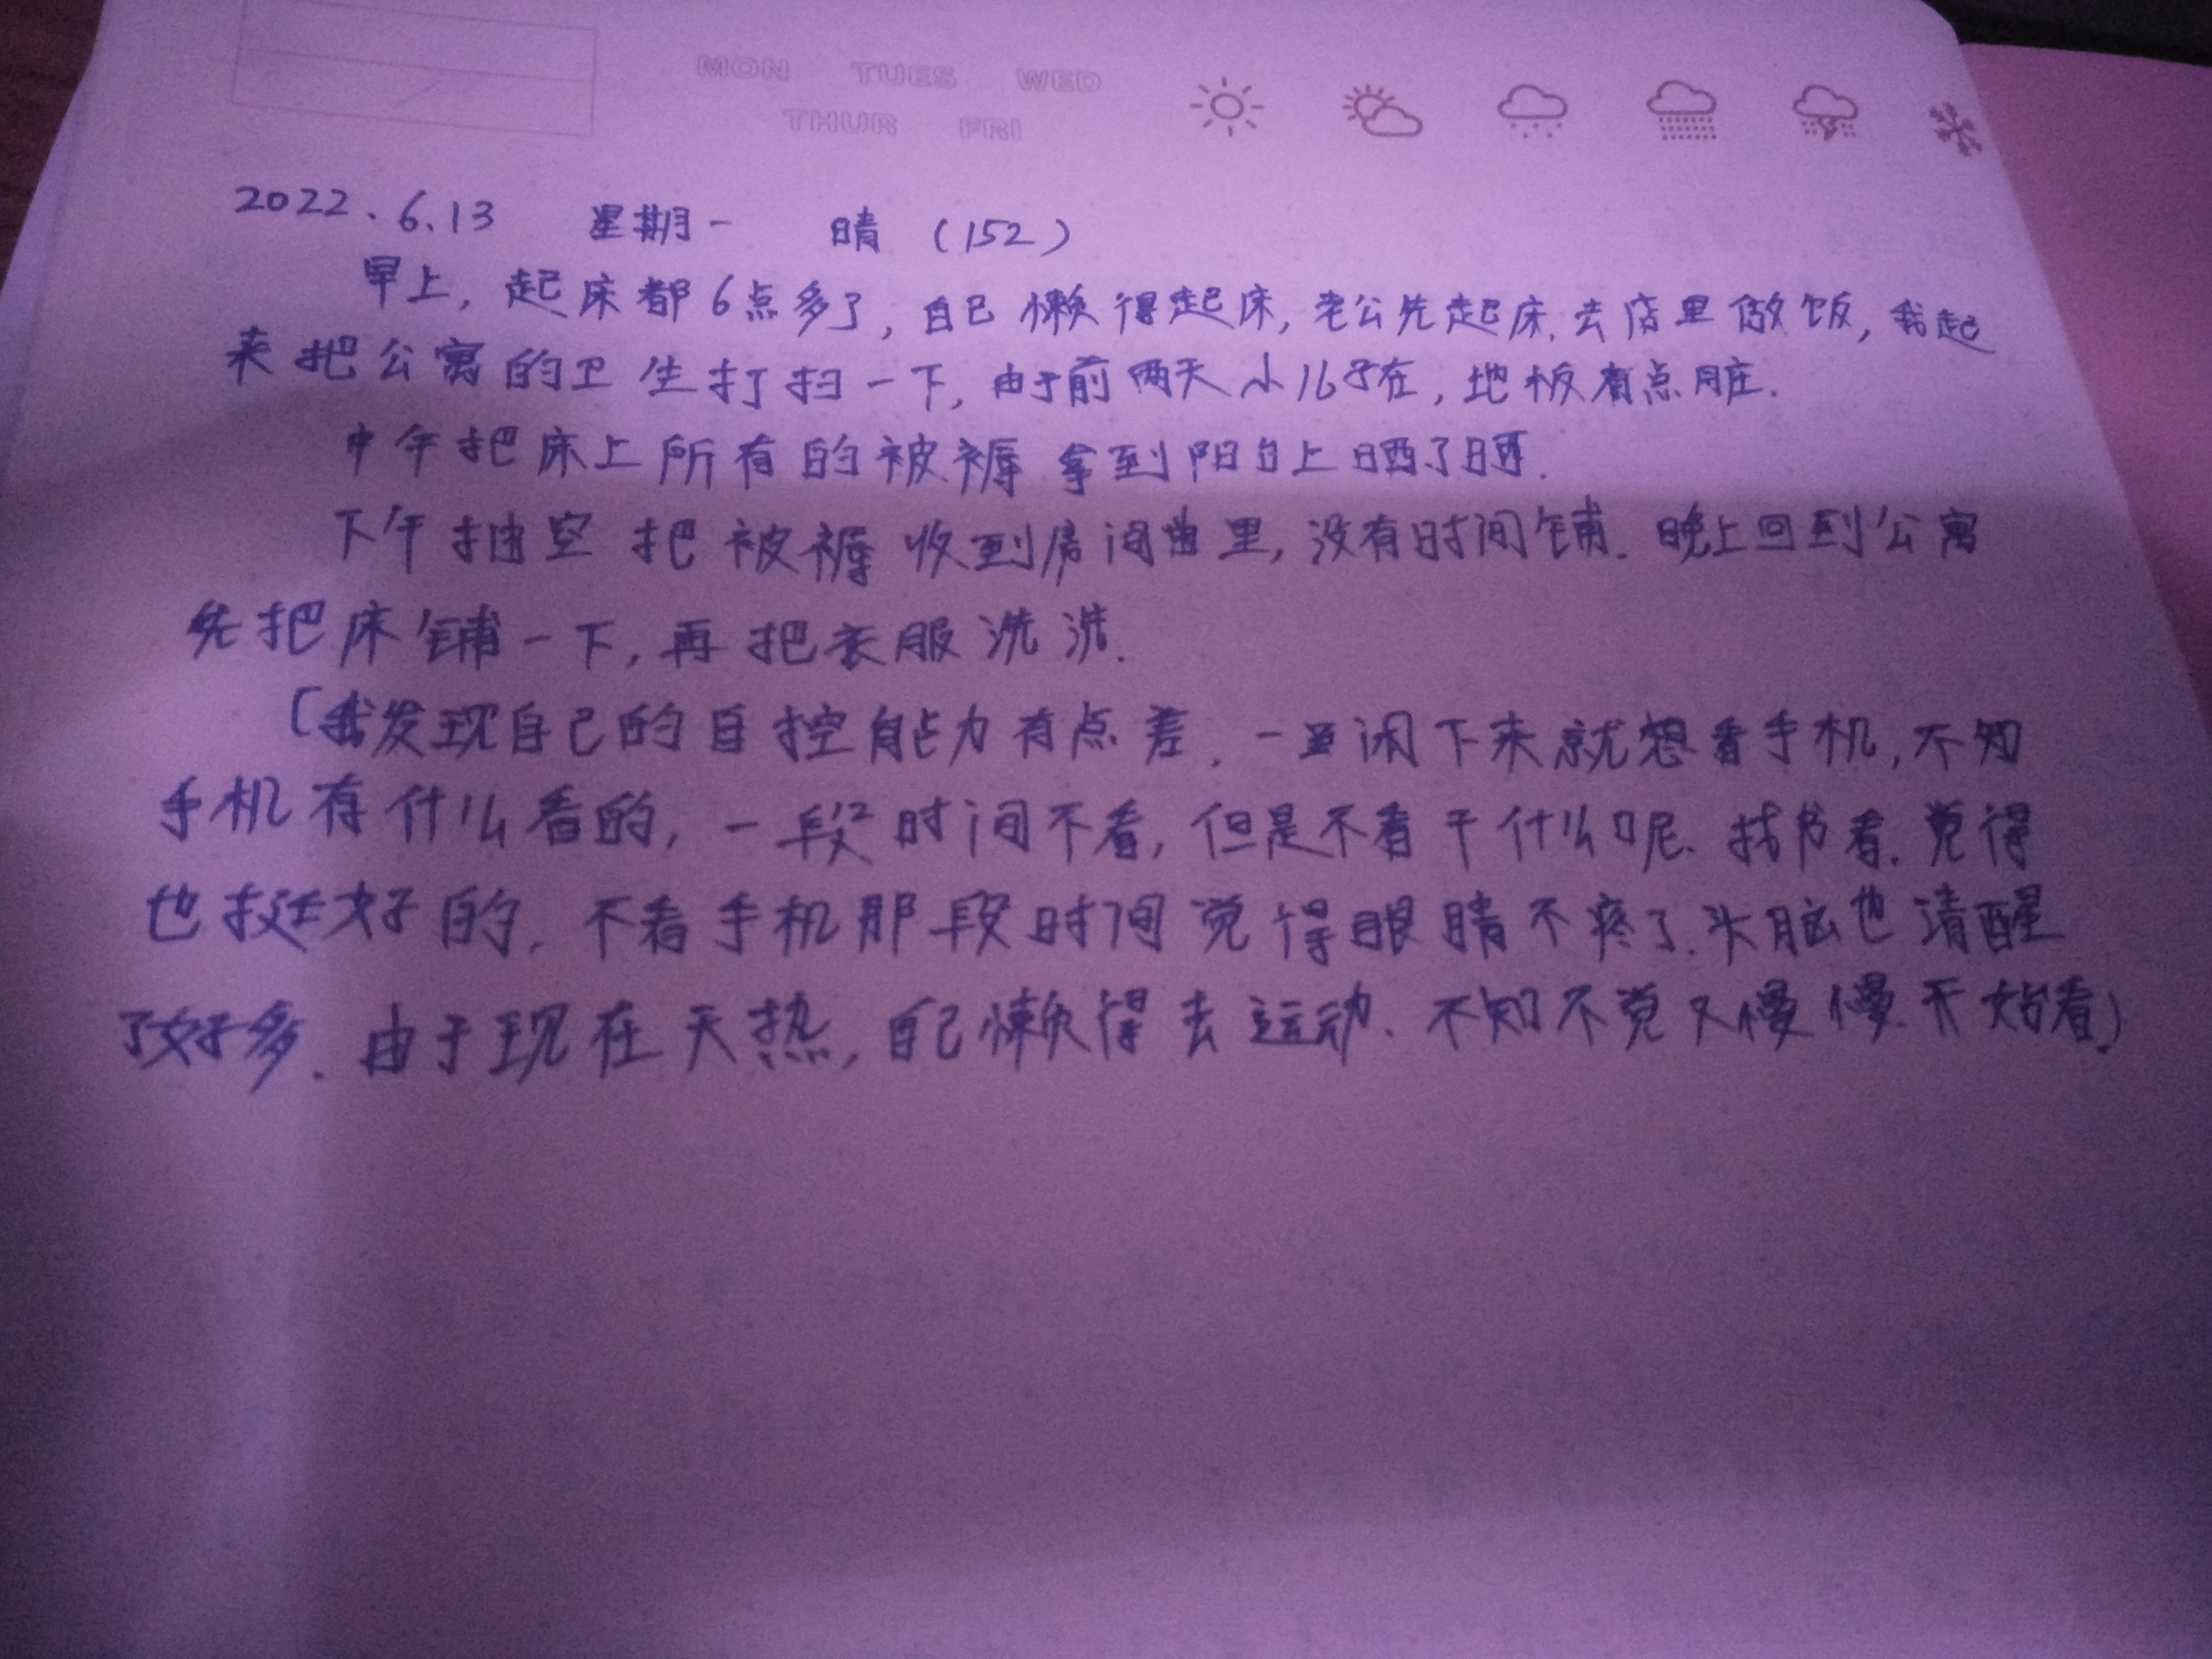 MON TUES WED
THUR FRI
2022.6.13 星期一 晴（152）
早上，起床都6点多了，自己懒得起床，老公先起床.去店里做饭，我起
来把公寓的卫生打扫一下，由于前两天小儿子在，地板有点脏.
中午把床上所有的被褥拿到阳台上晒了晒.
下午抽空把被褥收到房间里，没有时间铺.晚上回到公寓
先把床铺一下，再把衣服洗洗.
〔我发现自己的自控能力有点差.一闲下来就想看手机，不知
手机有什么看的，一段时间不看，但是不看干什么呢.找书看.觉得
也挺好的.不看手机那段时间觉得眼睛不疼了.头脑也清醒
了好多.由于现在天热，自己懒得去运动.不知不觉又慢慢开始看）.